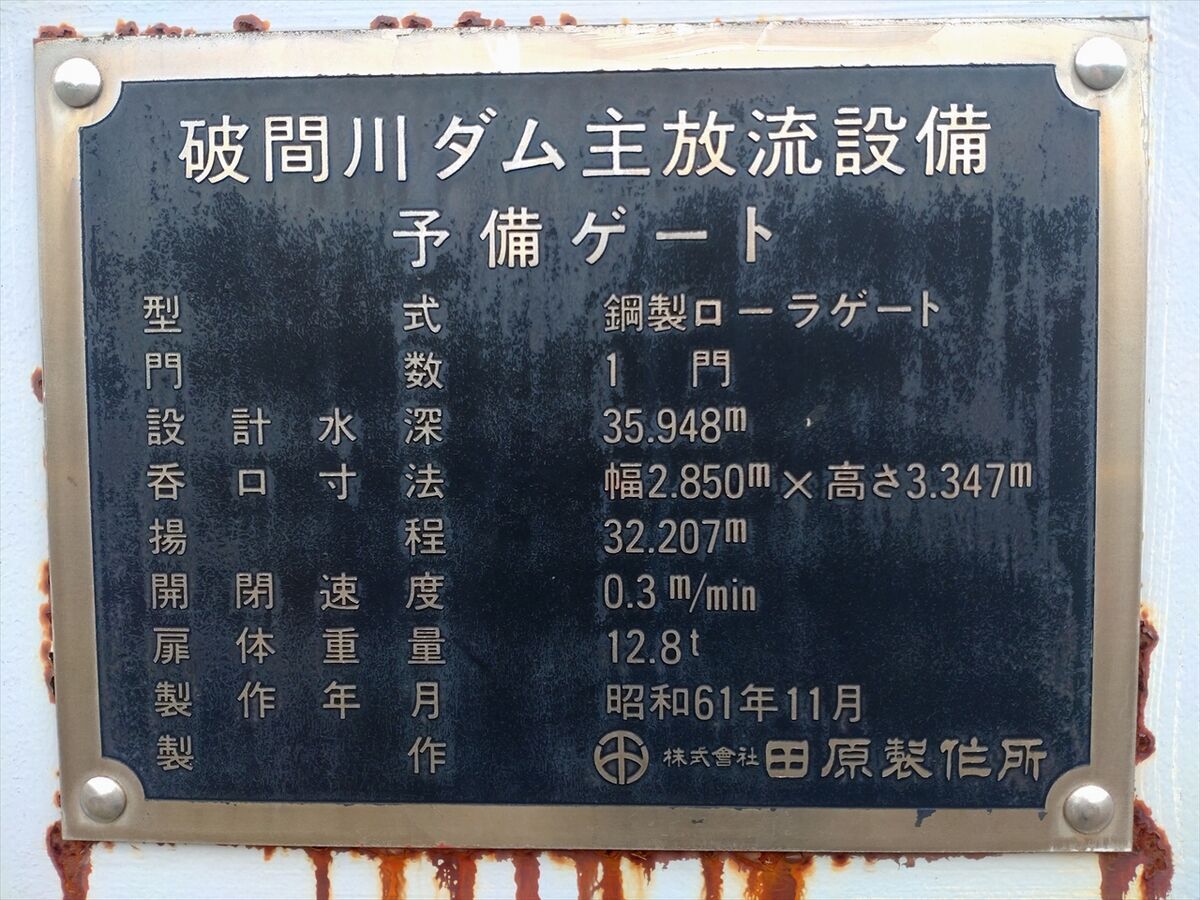 破間川ダム主放流設備
予備ゲート
型式 鋼製ローラゲート
門数 1門
設計水深 35.948m
呑口寸法 幅2.850m×高さ3.347m
揚程 32.207m
開閉速度 0.3m/min
扉体重量 12.8t
製作年月 昭和61年11月
製作 株式會社 田原製作所